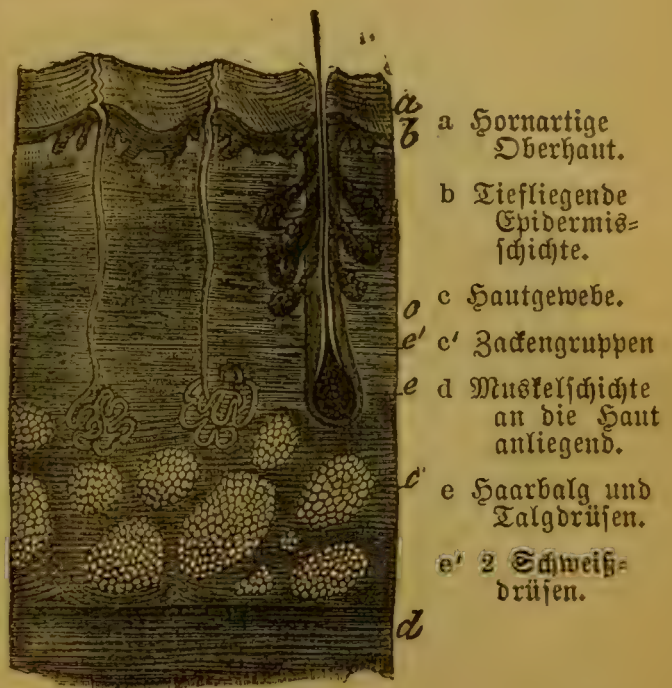 a
b
a Hornartige
Oberhaut.
b Tiefliegende
Epidermis=
schichte.
o
c Hautgewebe.
e'
c' Zackengruppen
e
d Muskelschichte
an die Haut
anliegend.
c'
e Haarbalg und
Talgdrüsen.
e' 2 Schweiß=
drüsen.
d